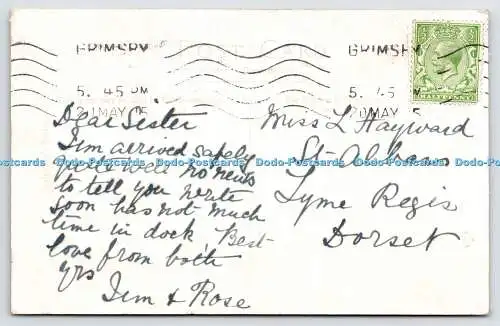 GRIMSBY
5. 45 PM
21 MAY 15
GRIMSBY
5. 45
21 MAY 15
POST CARD
HALFPENNY
Dear Sister
Jim arrived safely
quite well no news
to tell you write
soon has not much
time in dock Best
love from both
yrs
Jim & Rose
Miss L Hayward
St Albans
Lyme Regis
Dorset
Dodo-Postcards Dodo-Postcards Dodo-Postcards Dodo-Postcards Dodo-Postcards Dodo-Postcards Dodo-Postcards